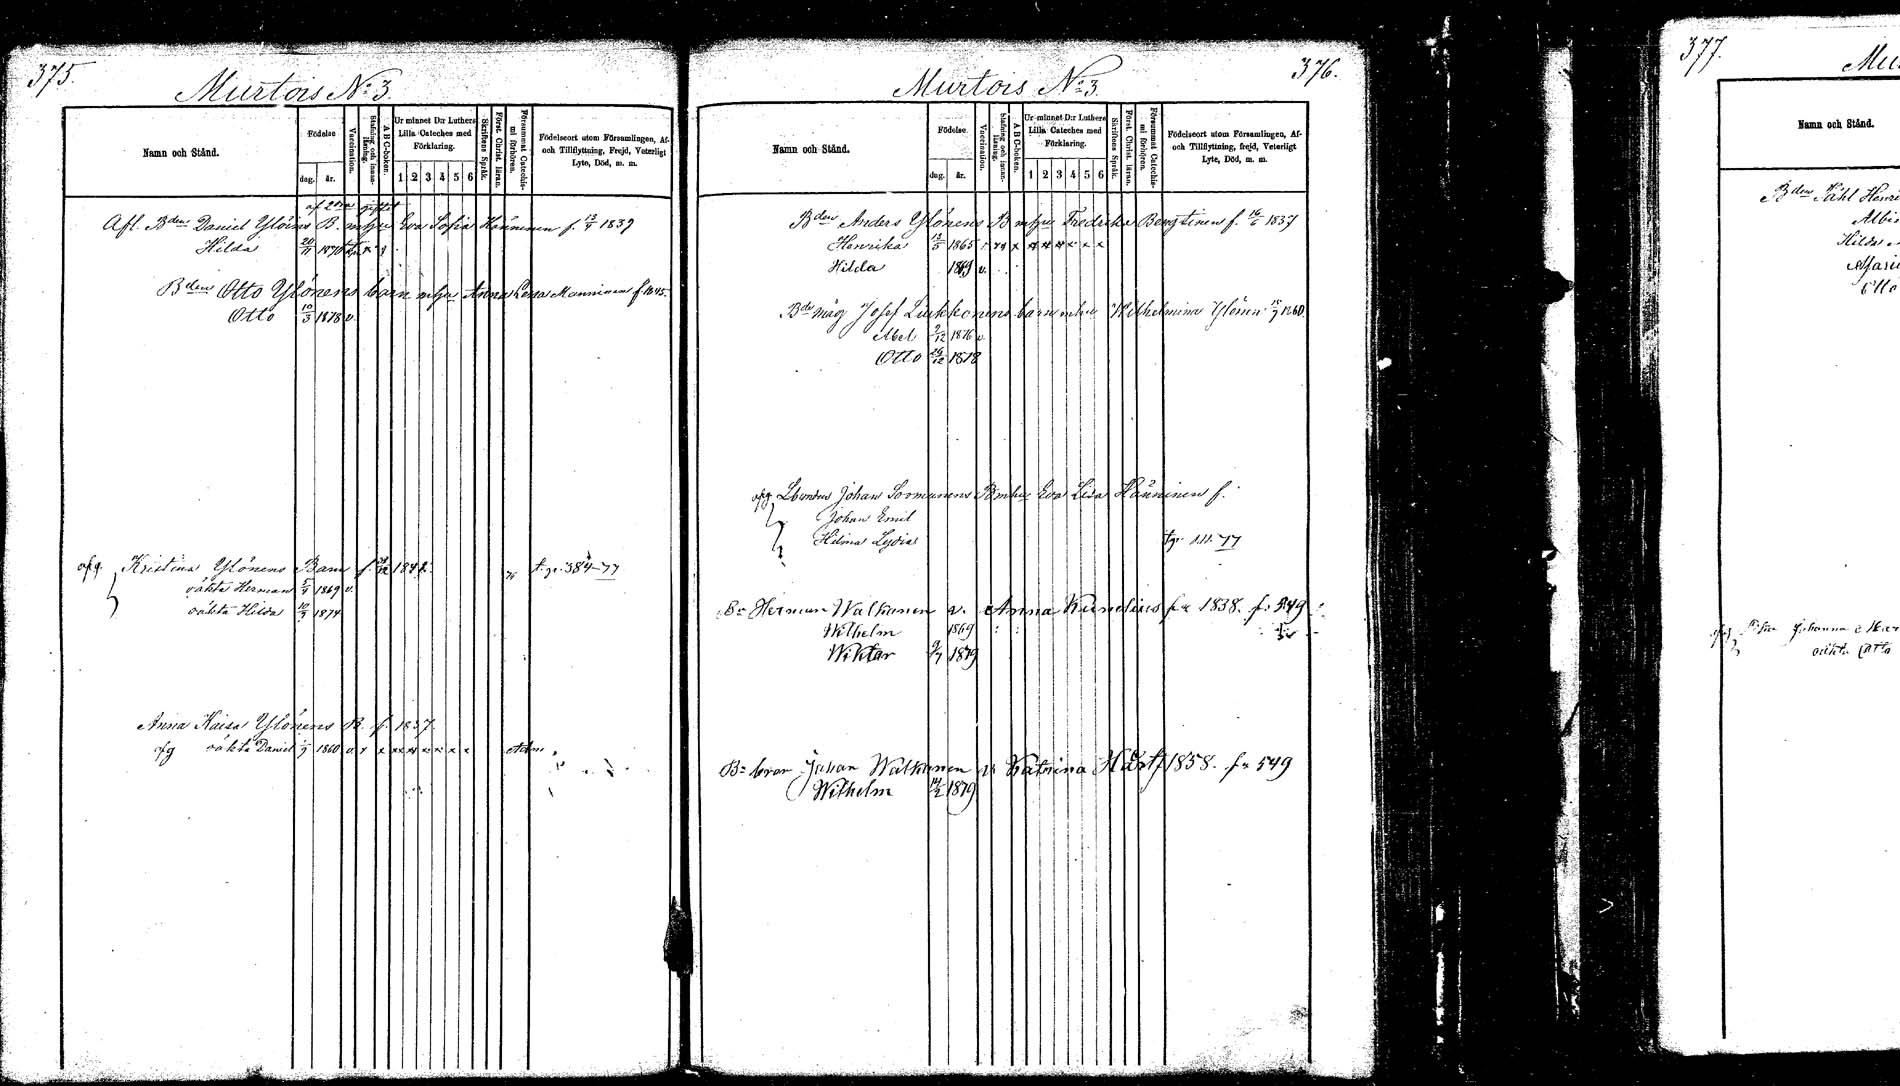 375.
Murtois No 3.
Namn och Stånd.
Födelse
dag.
år.
Vaccination.
Stafning och innan-läsning.
A B C-boken.
Ur minnet D:r Luthers Lilla Cateches med Förklaring.
1 2 3 4 5 6
Skriftens Språk.
Först. Christ. läran.
Försummat Catechismi förhören.
Födelseort utom Församlingen, Af- och Tillflyttning, Frejd, Veterligt Lyte, Död, m. m.
af 2dra giftet
Afl. Bden Daniel Ylöins B. m hu Eva Sofia Hänninen f. 13/4 1839
Hilda 20/11 1870
Bden Otto Ylönens barn m hu Anna Lena Manninen f. 1845.
Otto 10/3 1878 v.
afg. Kristina Ylönens Barn f. 1842.
oäkta Herman 5/4 1869 v.
oäkta Hilda 10/3 1874
76
t. p. 384-77
Anna Kaisa Ylönens B. f. 1837.
afg oäkta Daniel 1/9 1860 v. x x x x x x x x
376.
Murtois No 3.
Namn och Stånd.
Födelse
dag.
år.
Vaccination.
Stafning och innan-läsning.
A B C-boken.
Ur minnet D:r Luthers Lilla Cateches med Förklaring.
1 2 3 4 5 6
Skriftens Språk.
Först. Christ. läran.
Försummat Catechismi förhören.
Födelseort utom Församlingen, Af- och Tillflyttning, frejd, Veterligt Lyte, Död, m. m.
Bden Anders Ylönens B m hu Fredrika Bengtinen f. 16/6 1837
Henrika 12/5 1865
Hilda 1869 v.
Bde måg Josef Liukkonens barn m hu Wilhelmina Ylönen 15/7 1860.
Abel 9/12 1876 v.
Otto 26/12 1878
afg Johan Sormunens B m hu Eva Lisa Hänninen f.
Johan Emil
Hilma Lydia
77
Br Herman Walkonen v. Anna Kunelius fr 1838. fr 549
Wilhelm 1869
Wiktor 9/7 1879
Br bror Johan Walkonen v. Katrina 1858. fr 549
Wilhelm 14/2 1879
377.
Mu
Namn och Stånd.
Bden Påhl Henri
Albi
Hilda
Mari
Otto
afg Johanna
oäkta Otto